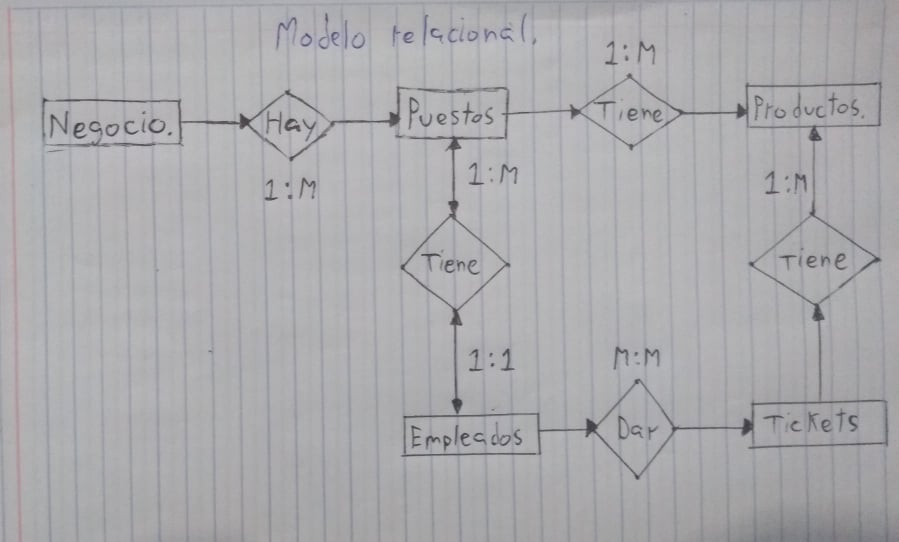 Modelo relacional.
1:M
Negocio.
Hay
Puestos
Tiene
Productos.
1:M
1:M
1:M
Tiene
Tiene
1:1
M:M
Empleados
Dar
Tickets